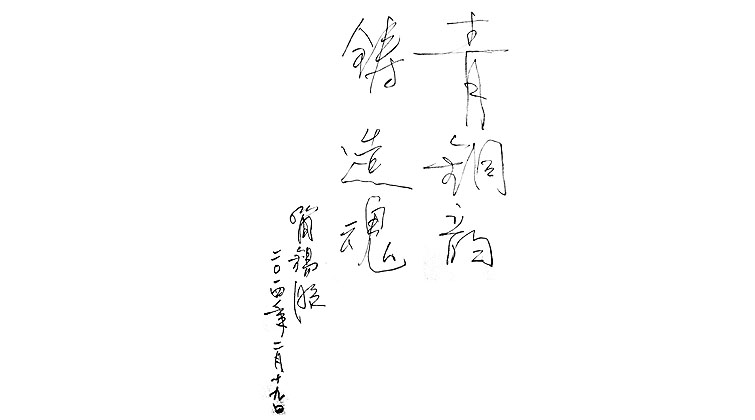 青铜韵
铸造魂
管锡
二〇一四年二月十九日